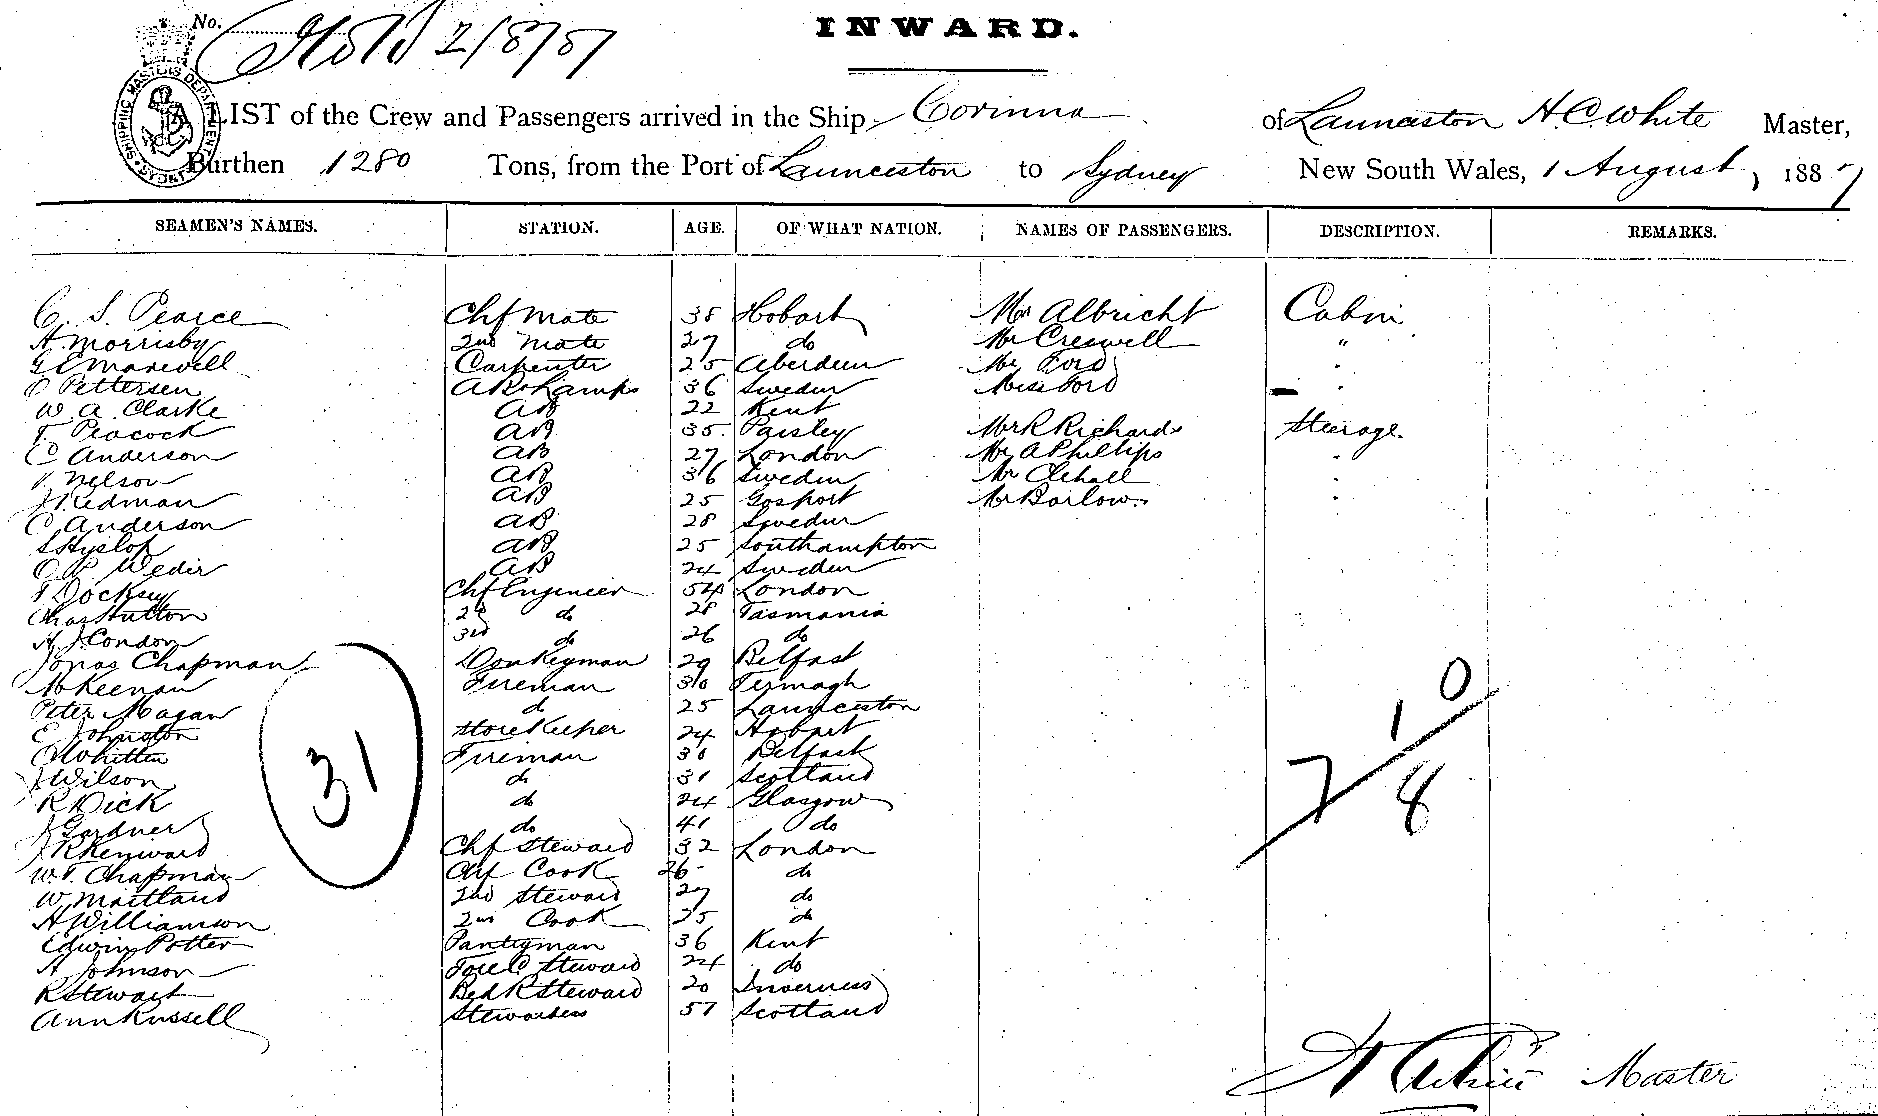 No.
2/8/87
INWARD.
SHIPPING MASTERS DEPARTMENT SYDNEY
A LIST of the Crew and Passengers arrived in the Ship Corinna of Launceston H.C. White Master,
Burthen 1280 Tons, from the Port of Launceston to Sydney New South Wales, 1 August, 1887
SEAMEN'S NAMES. STATION. AGE. OF WHAT NATION. NAMES OF PASSENGERS. DESCRIPTION. REMARKS.
C. S. Pearce Chf Mate 38 Hobart Albricht Cabin
A. Morrisby 2nd Mate 27 do Mr Creswell "
G E Maxwell Carpenter 25 Aberdeen Mr Ford "
Pettersen AB & Lamps 36 Sweden Miss Ford "
W. A. Clarke AB 22 Kent
T. Peacock AB 35 Paisley Mr R Richards Steerage.
C Anderson AB 27 London Mr A Phillips "
Nelson AB 36 Sweden Mr "
J Redman AB 25 Gosport Mr Barlow "
C Anderson AB 28 Sweden
S Hyslop AB 25 Southampton
AB 24 Sweden
Chf Engineer 54 London
Chas Hutton 2d do 28 Tasmania
A J Condon 3rd do 26 do
Jonas Chapman Donkeyman 29 Belfast
McKeenan Fireman 30 Fermagh
Peter Magan do 25 Launceston
C Johnston Storekeeper 24 Hobart
Whitten Fireman 30 Belfast
J Wilson do 31 Scotland
R Dick do 24 Glasgow
J Gardner do 41 do
J R Kenward Chf Steward 32 London
W. T. Chapman Chf Cook 26 do
W Maitland 2nd Steward 27 do
A Williamson 2nd Cook 25 do
Edwin Potter Pantryman 36 Kent
A Johnson Fore C Steward 24 do
R Stewart Bed R Steward 20 Inverness
Ann Russell Stewardess 57 Scotland
31
10
7 8
H C White Master